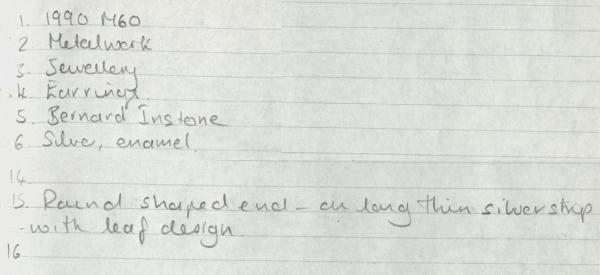 1. 1990 M60
2 Metalwork
3. Jewellery
4. Earrings
5. Bernard Instone
6 Silver, enamel.
14.
15. Round shaped end - on long thin silver strip
- with leaf design.
16